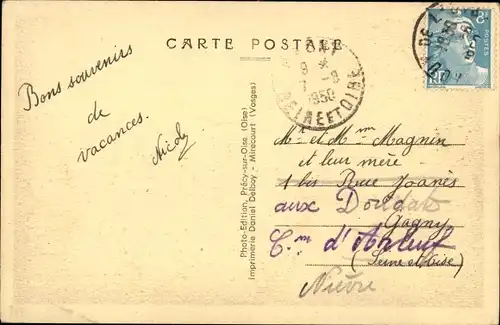 CARTE POSTALE
9 *
7 - 8
1950
SEINE ET OISE
Bons souvenirs
de
vacances.
Nicole
Photo-Edition, Précy-sur-Oise (Oise)
Imprimerie Daniel Delboy - Mirecourt (Vosges)
Mr et Mme Magnin
et leur mère
1 bis Rue Joanès
aux Doudats
Gagny
Cm d'Arleuf
(Seine et Oise)
Nièvre